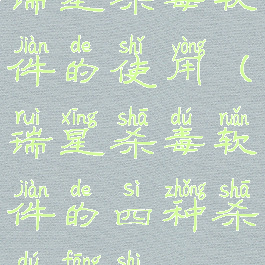 瑞星杀毒软
jiàn de shǐ yòng
件的使用（
ruì xīng shā dú ruǎn
瑞星杀毒软
jiàn de sì zhǒng shā
件的四种杀
dú fāng shì